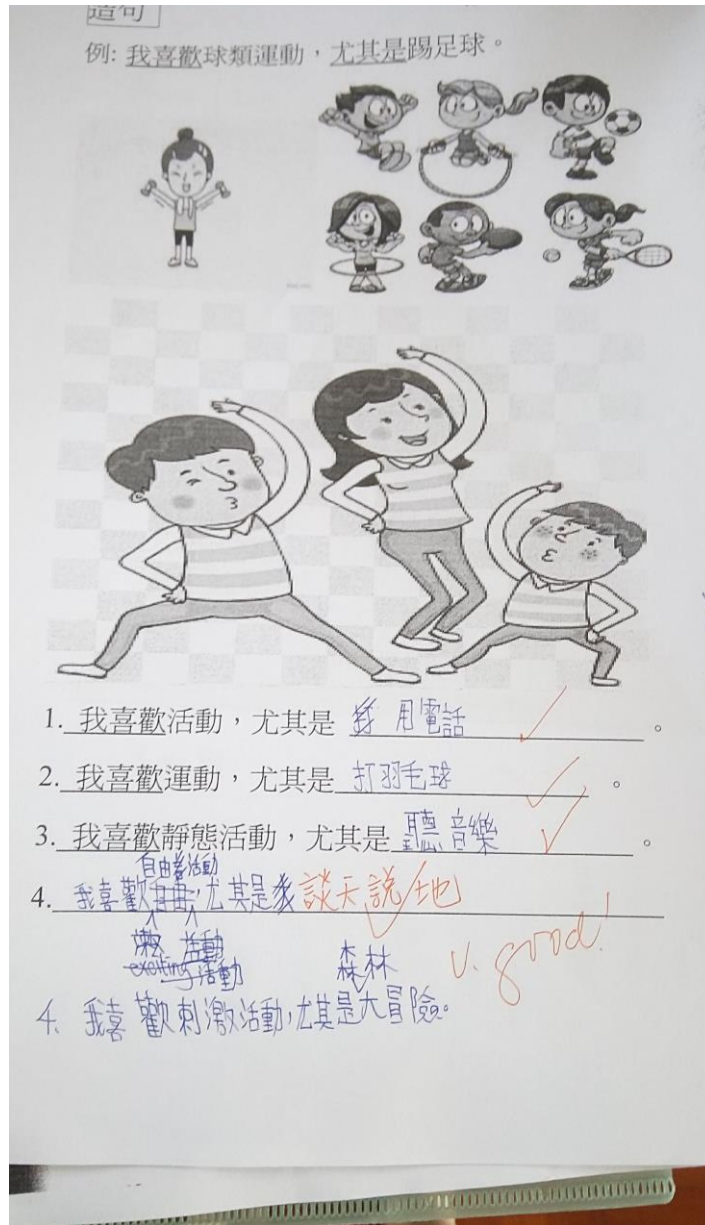 造句
例: 我喜歡球類運動，尤其是踢足球。
1. 我喜歡活動，尤其是 用電話。
2. 我喜歡運動，尤其是 打羽毛球。
3. 我喜歡靜態活動，尤其是 聽音樂。
自由活動
4. 我喜歡自由，尤其是談天說地
活動
exciting 活動
森林
v. good!
4. 我喜歡刺激活動，尤其是大冒險。